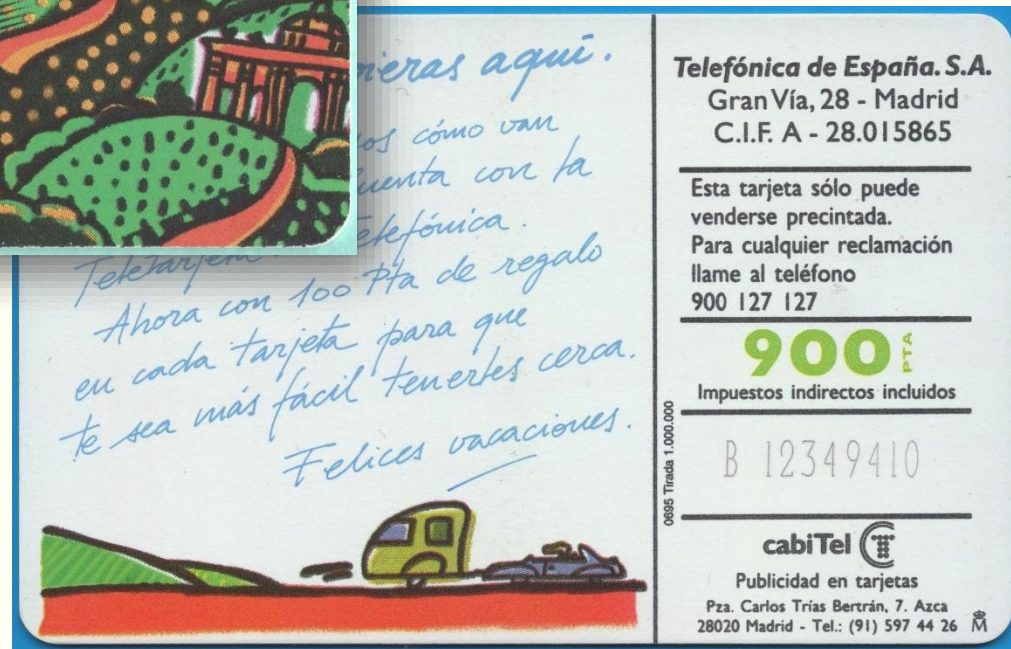 aquí.
cómo van
con la
Telefónica.
Ahora con 100 Pta de regalo
en cada tarjeta para que
te sea más fácil tenerles cerca.
Felices vacaciones.
Telefónica de España. S.A.
Gran Vía, 28 - Madrid
C.I.F. A - 28.015865
Esta tarjeta sólo puede
venderse precintada.
Para cualquier reclamación
llame al teléfono
900 127 127
900 PTA
Impuestos indirectos incluidos
0695 Tirada 1.000.000
B 12349410
cabiTel
Publicidad en tarjetas
Pza. Carlos Trías Bertrán, 7. Azca
28020 Madrid - Tel.: (91) 597 44 26 M